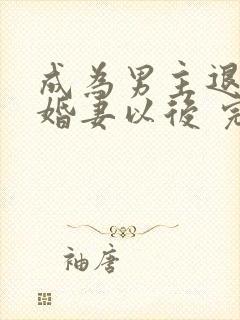 成為男主退
婚妻以後 完
袖唐